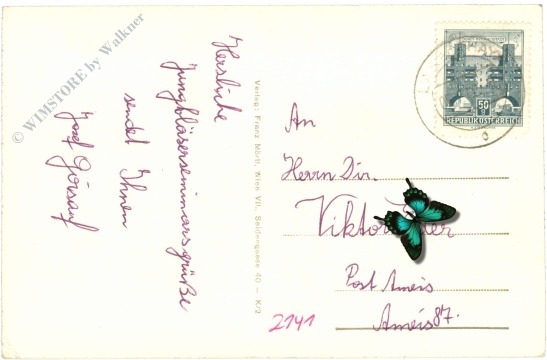 Herzliche
Jungbläserseminarsgrüße
sendet Ihnen
Josef
Verlag: Franz Mörtl, Wien VII., Seidengasse 40 — K/2
50
REPUBLIK ÖSTERREICH
An
Herrn Dir.
Post Ameis
Ameis 87.
2141
© WIMSTORE by Walkner